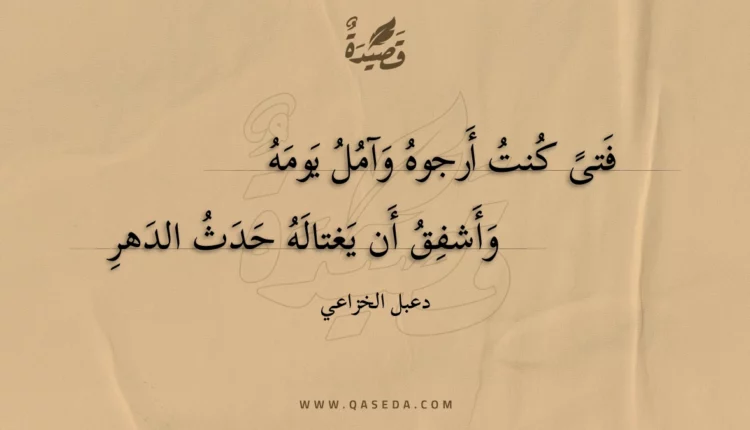 قَصِيْدَةٌ
فَتىً كُنتُ أَرجوهُ وَآمُلُ يَومَهُ
وَأَشفِقُ أَن يَغتالَهُ حَدَثُ الدَهرِ
دعبل الخزاعي
WWW.QASEDA.COM